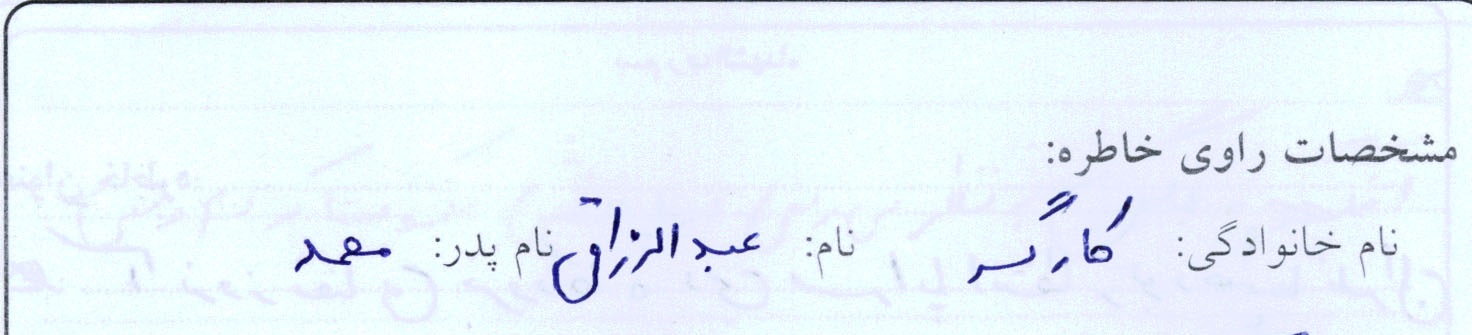 مشخصات راوی خاطره:
نام خانوادگی: کارگر نام: عبدالرزاق نام پدر: محمد